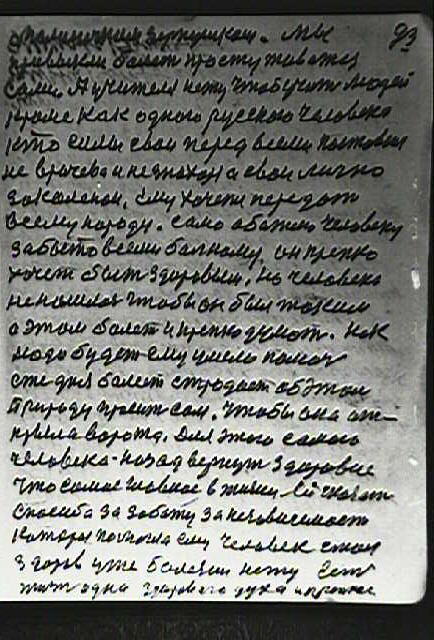 93
больничным мы
привыкли болеть простуживаться
сами. А учителя нету чтобы учить людей
кроме как одного русского человека
кто силы свои перед всеми поставил
не врачева и незнахаря а свои лично
закаленои, ему хочется передать
всему народу. само обажено человеку
забыто всеми больному, он крепко
хочет быть здоровым, но человека
ненашлося чтобы он был таким
о этом болеет и крепко думает. как
надо будет ему умело помоч
сие дня болеет страдает об этом
Природу просит сам. чтобы она от-
крыла ворота. для этого самого
человека назад вернут здоровие
что самое главное в жизни Ей сказать
спасиба за заботу за независимость
которая помогла ему человек стал
здоров уже болезни нету Есть
одна здорового духа